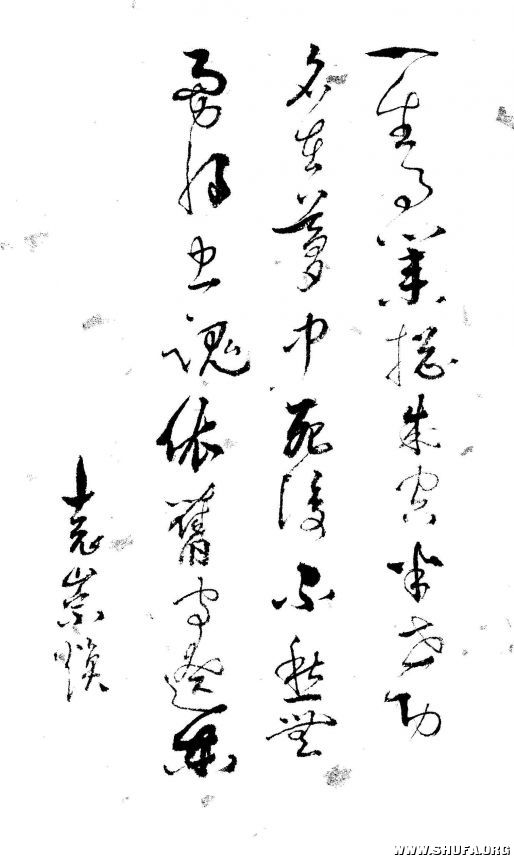 一生事業總成空半世功
名在夢中死後不愁無
勇將忠魂依舊守遼東
袁崇煥
WWW.SHUFA.ORG